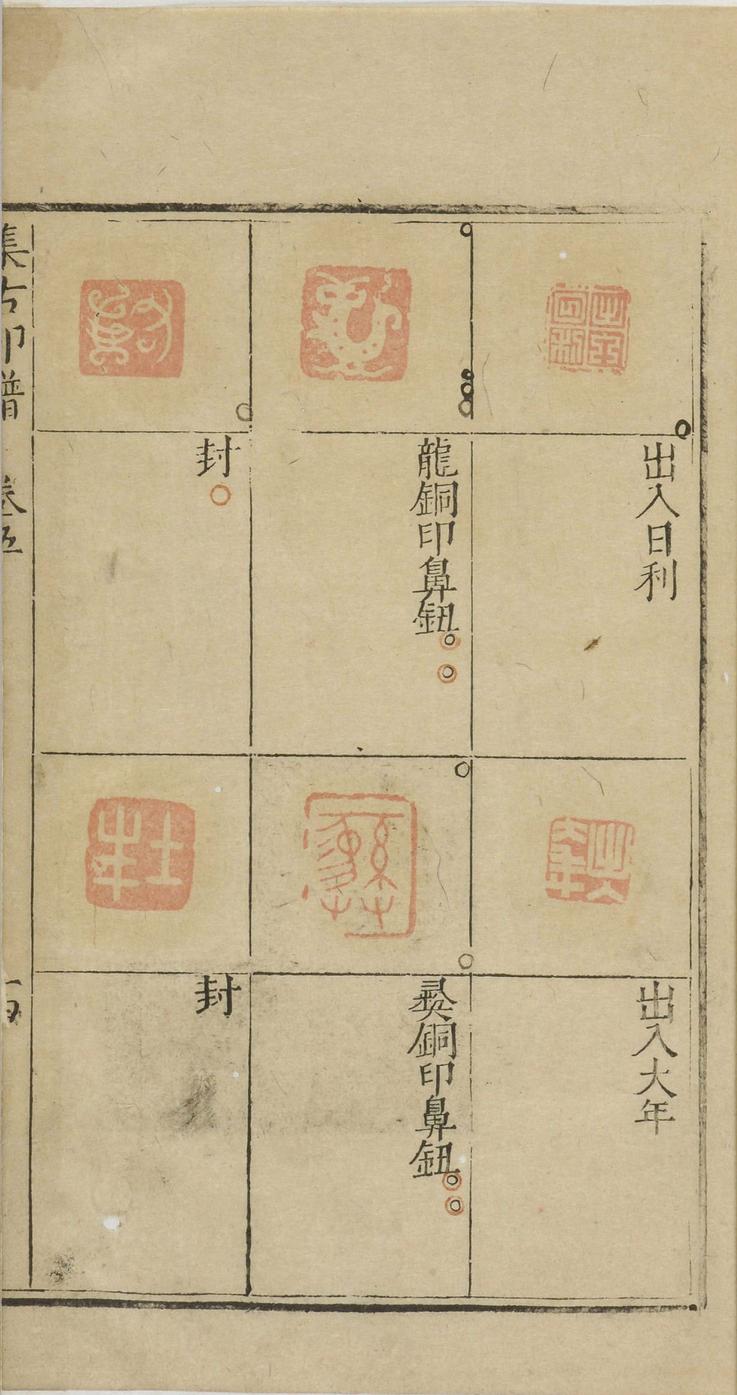 出入日利
龍銅印鼻鈕
封
出入大年
銅印鼻鈕
封
集古印譜 卷五